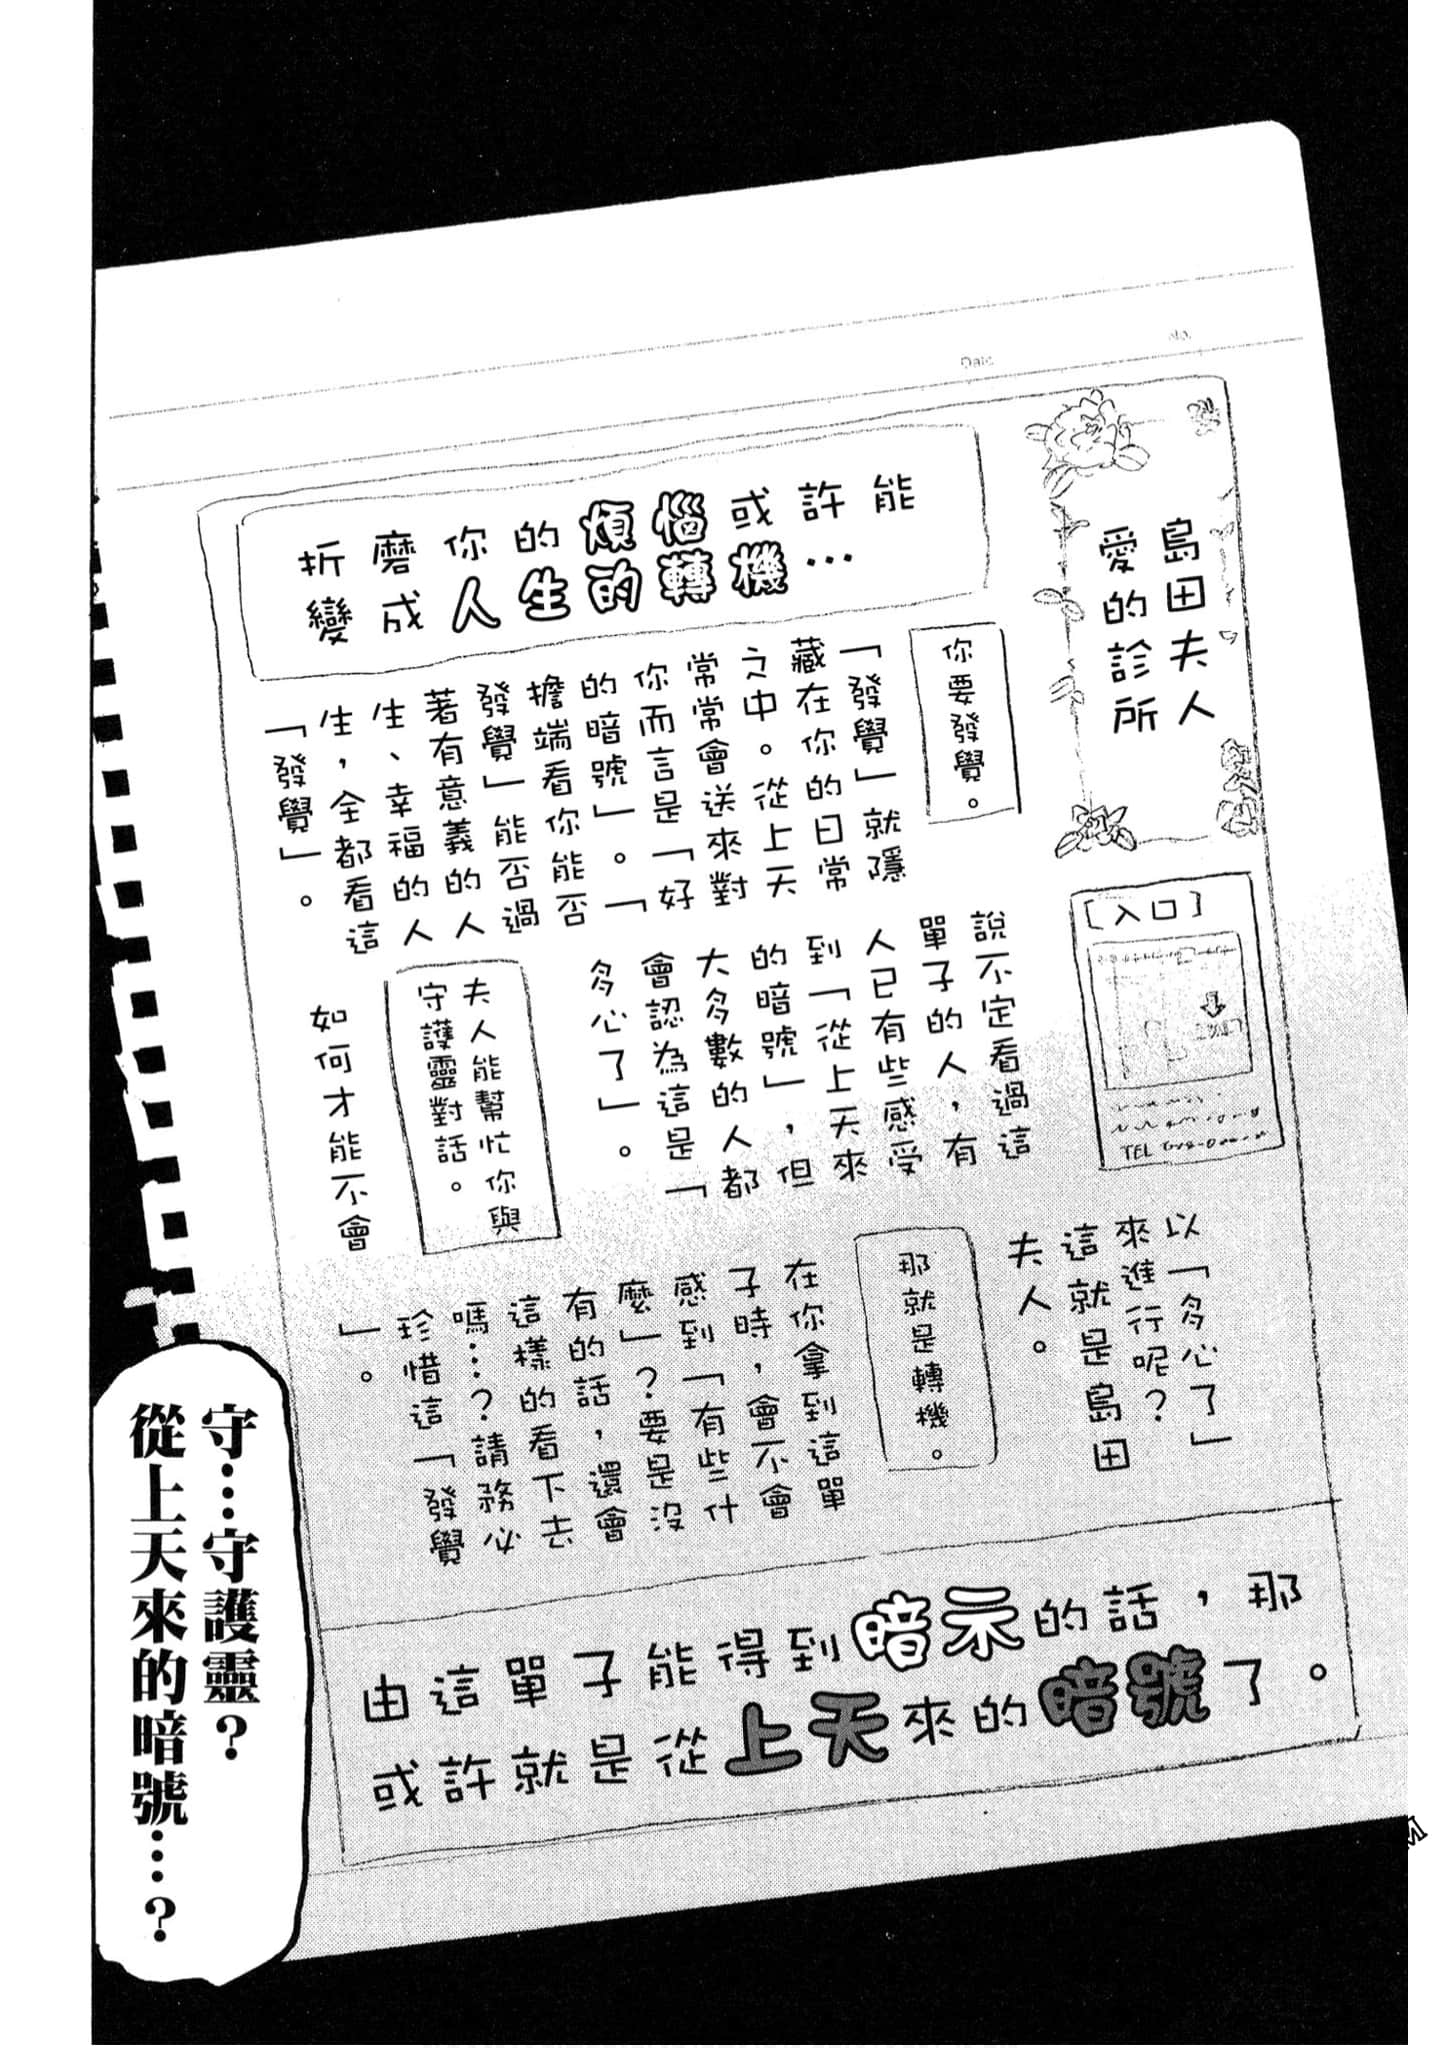 No.
Date
島田夫人
愛的診所
折磨你的煩惱或許能
變成人生的轉機…
你要發覺。
「發覺」就隱
藏在你的日常
之中。從上天
常常會送來對
你而言是「好
的暗號」。「
擔端看你能否
發覺」能否過
著有意義的人
生、幸福的人
生，全都看這
「發覺」。
[入口]
TEL
說不定看過這
單子的人，有
人已有些感受
到「從上天來
的暗號」，但
大多數的人都
會認為這是「
多心了」。
夫人能幫忙你與
守護靈對話。
如何才能不會
以「多心了」
來進行呢？
這就是島田
夫人。
那就是轉機。
在你拿到這單
子時，會不會
感到「有些什
麼」？要是沒
有的話，還會
這樣的看下去
嗎…？請務必
珍惜這「發覺
」。
由這單子能得到暗示的話，那
或許就是從上天來的暗號了。
守…守護靈？
從上天來的暗號…？